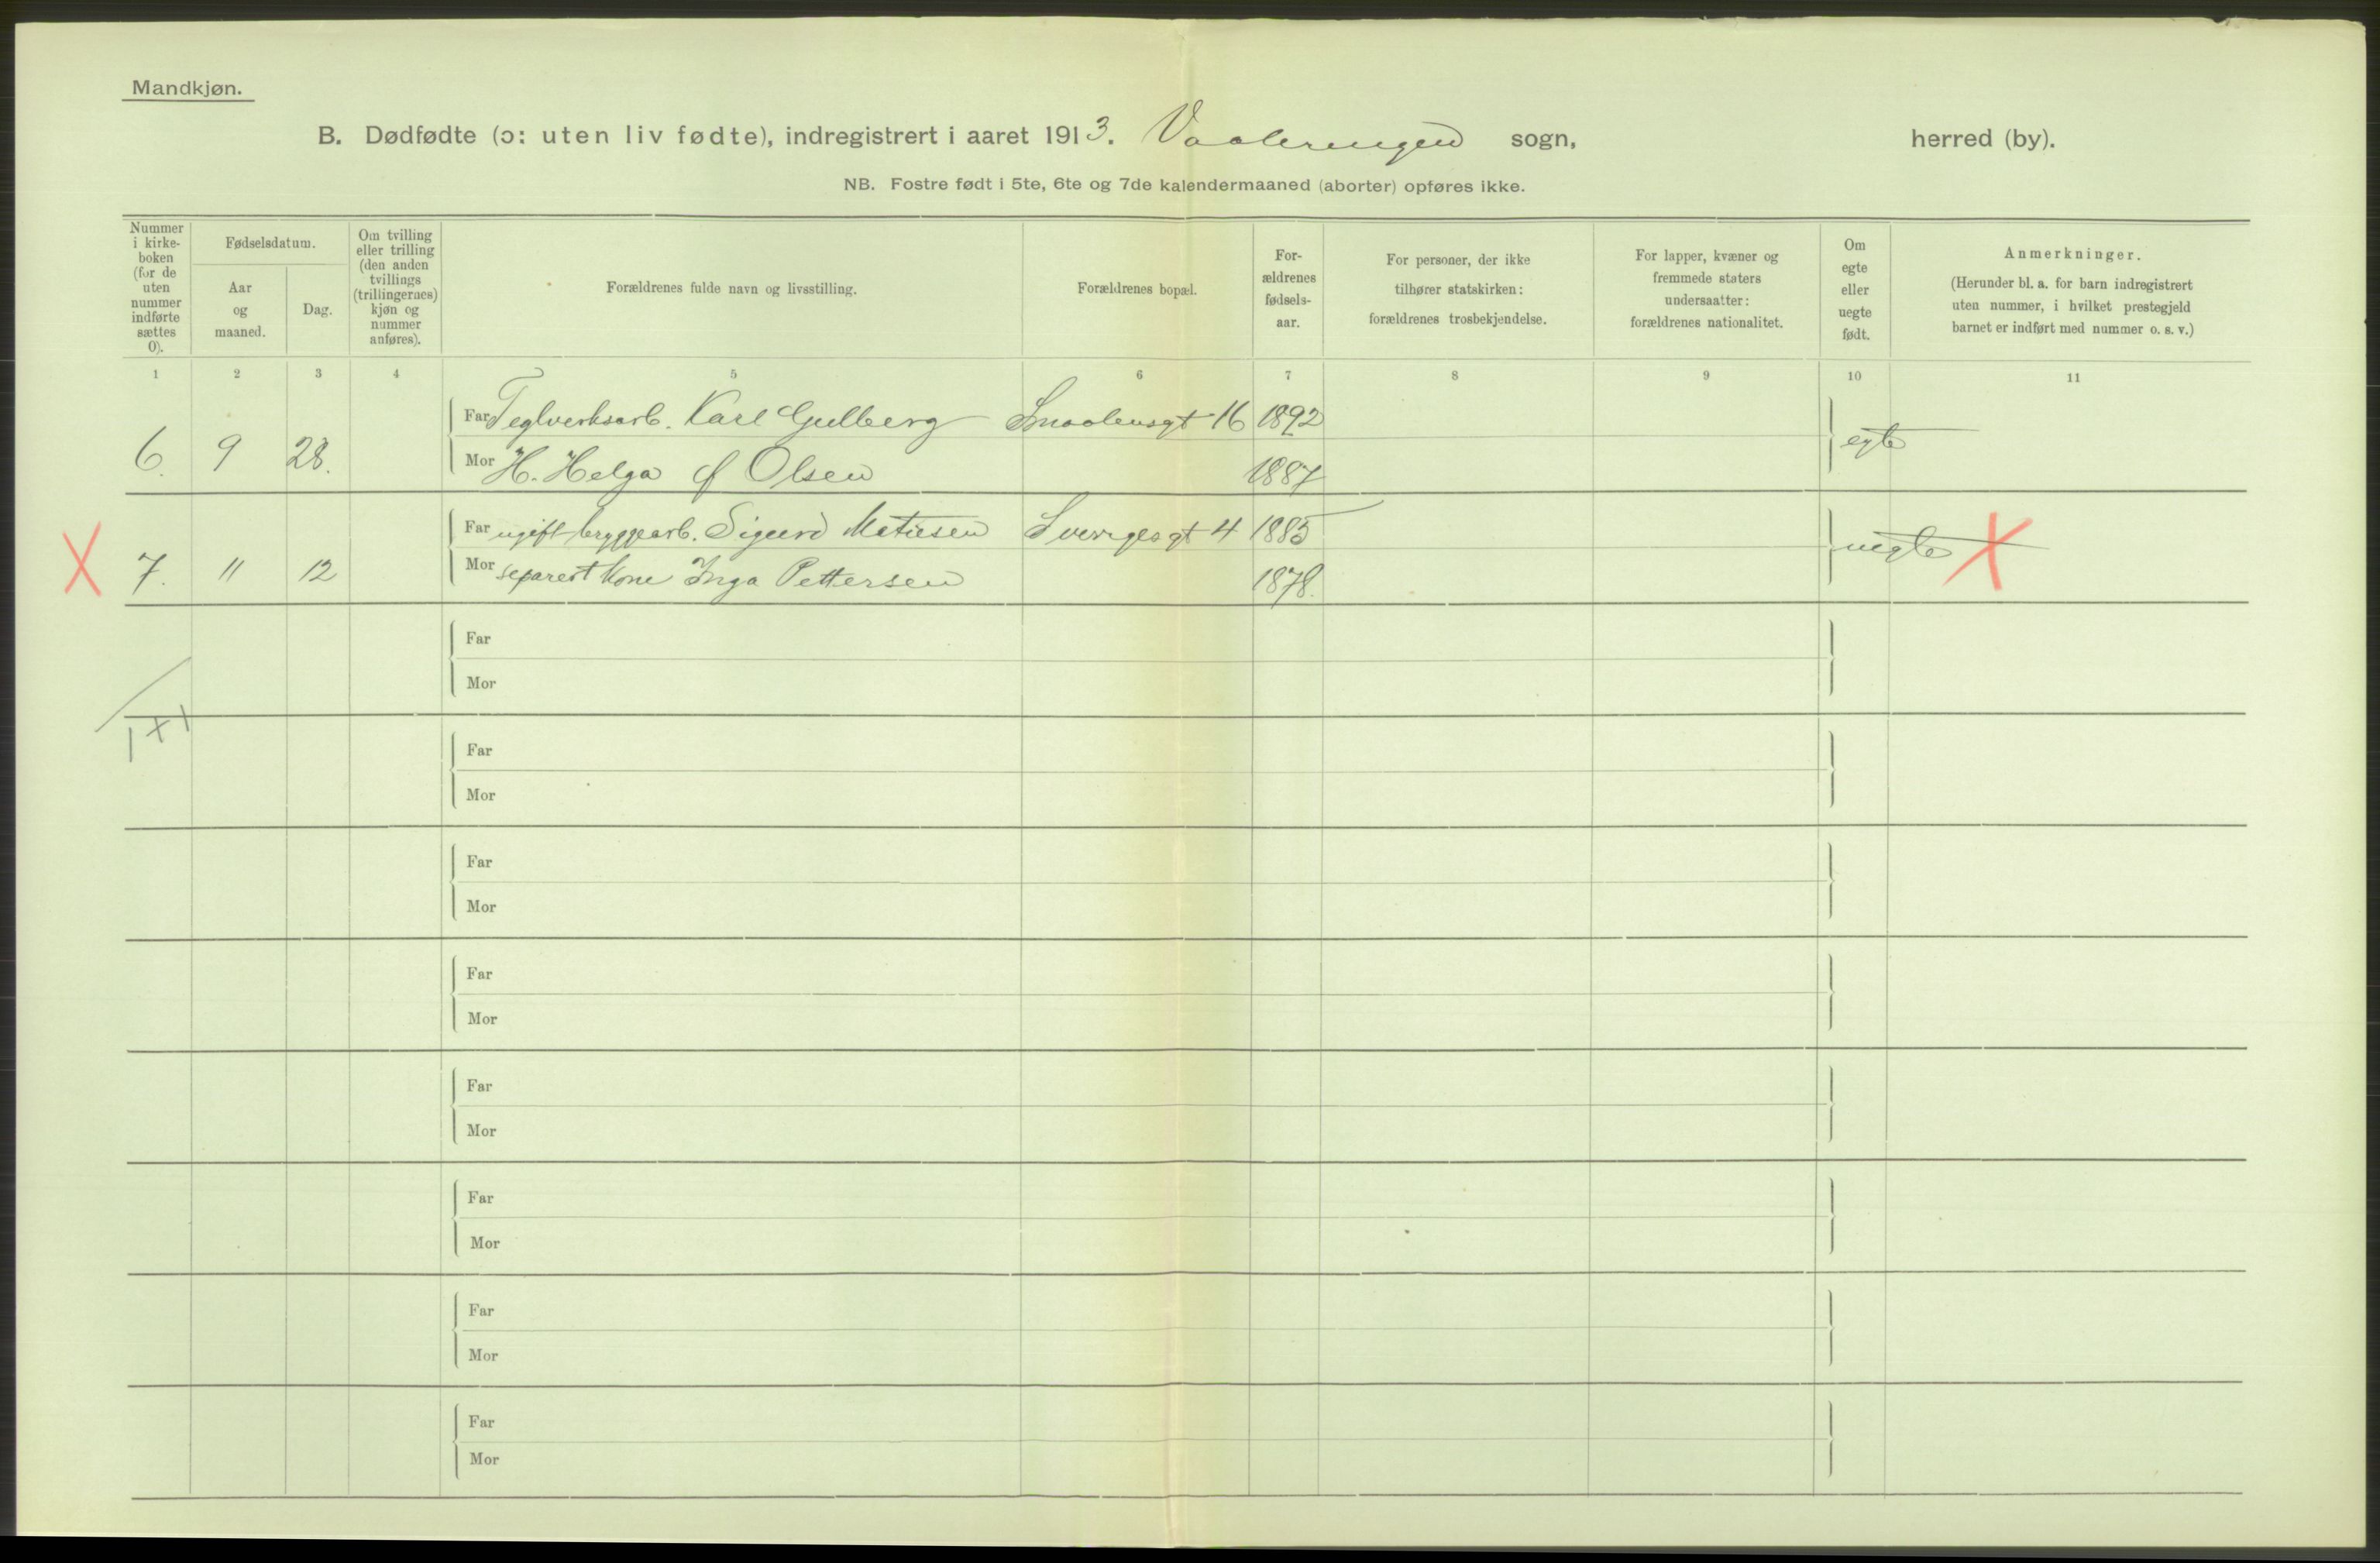 Mandkjøn.
B. Dødfødte (ɔ: uten liv fødte), indregistrert i aaret 1913. Vaalerengen sogn, herred (by).
NB. Fostre født i 5te, 6te og 7de kalendermaaned (aborter) opføres ikke.
Nummer
i kirke-
boken
(for de
uten
nummer
indførte
sættes
0).
Fødselsdatum.
Aar
og
maaned.
Dag.
Om tvilling
eller trilling
(den anden
tvillings
(trillingernes)
kjøn og
nummer
anføres).
Forældrenes fulde navn og livsstilling.
Forældrenes bopæl.
For-
ældrenes
fødsels-
aar.
For personer, der ikke
tilhører statskirken:
forældrenes trosbekjendelse.
For lapper, kvæner og
fremmede staters
undersaatter:
forældrenes nationalitet.
Om
egte
eller
uegte
født.
Anmerkninger.
(Herunder bl. a. for barn indregistrert
uten nummer, i hvilket prestegjeld
barnet er indført med nummer o. s. v.)
1 2 3 4 5 6 7 8 9 10 11
Far Teglverksarb. Karl Gulberg Smaalensgt 16 1892
6. 9 28. egte
Mor H. Helga f Olsen 1887
Far ugift bryggearb. Sigurd Matiesen Sverigesgt 4 1885
X 7. 11 12 uegte X
Mor separert kone Inga Pettersen 1878.
Far
Mor
1 + 1
Far
Mor
Far
Mor
Far
Mor
Far
Mor
Far
Mor
Far
Mor
Far
Mor